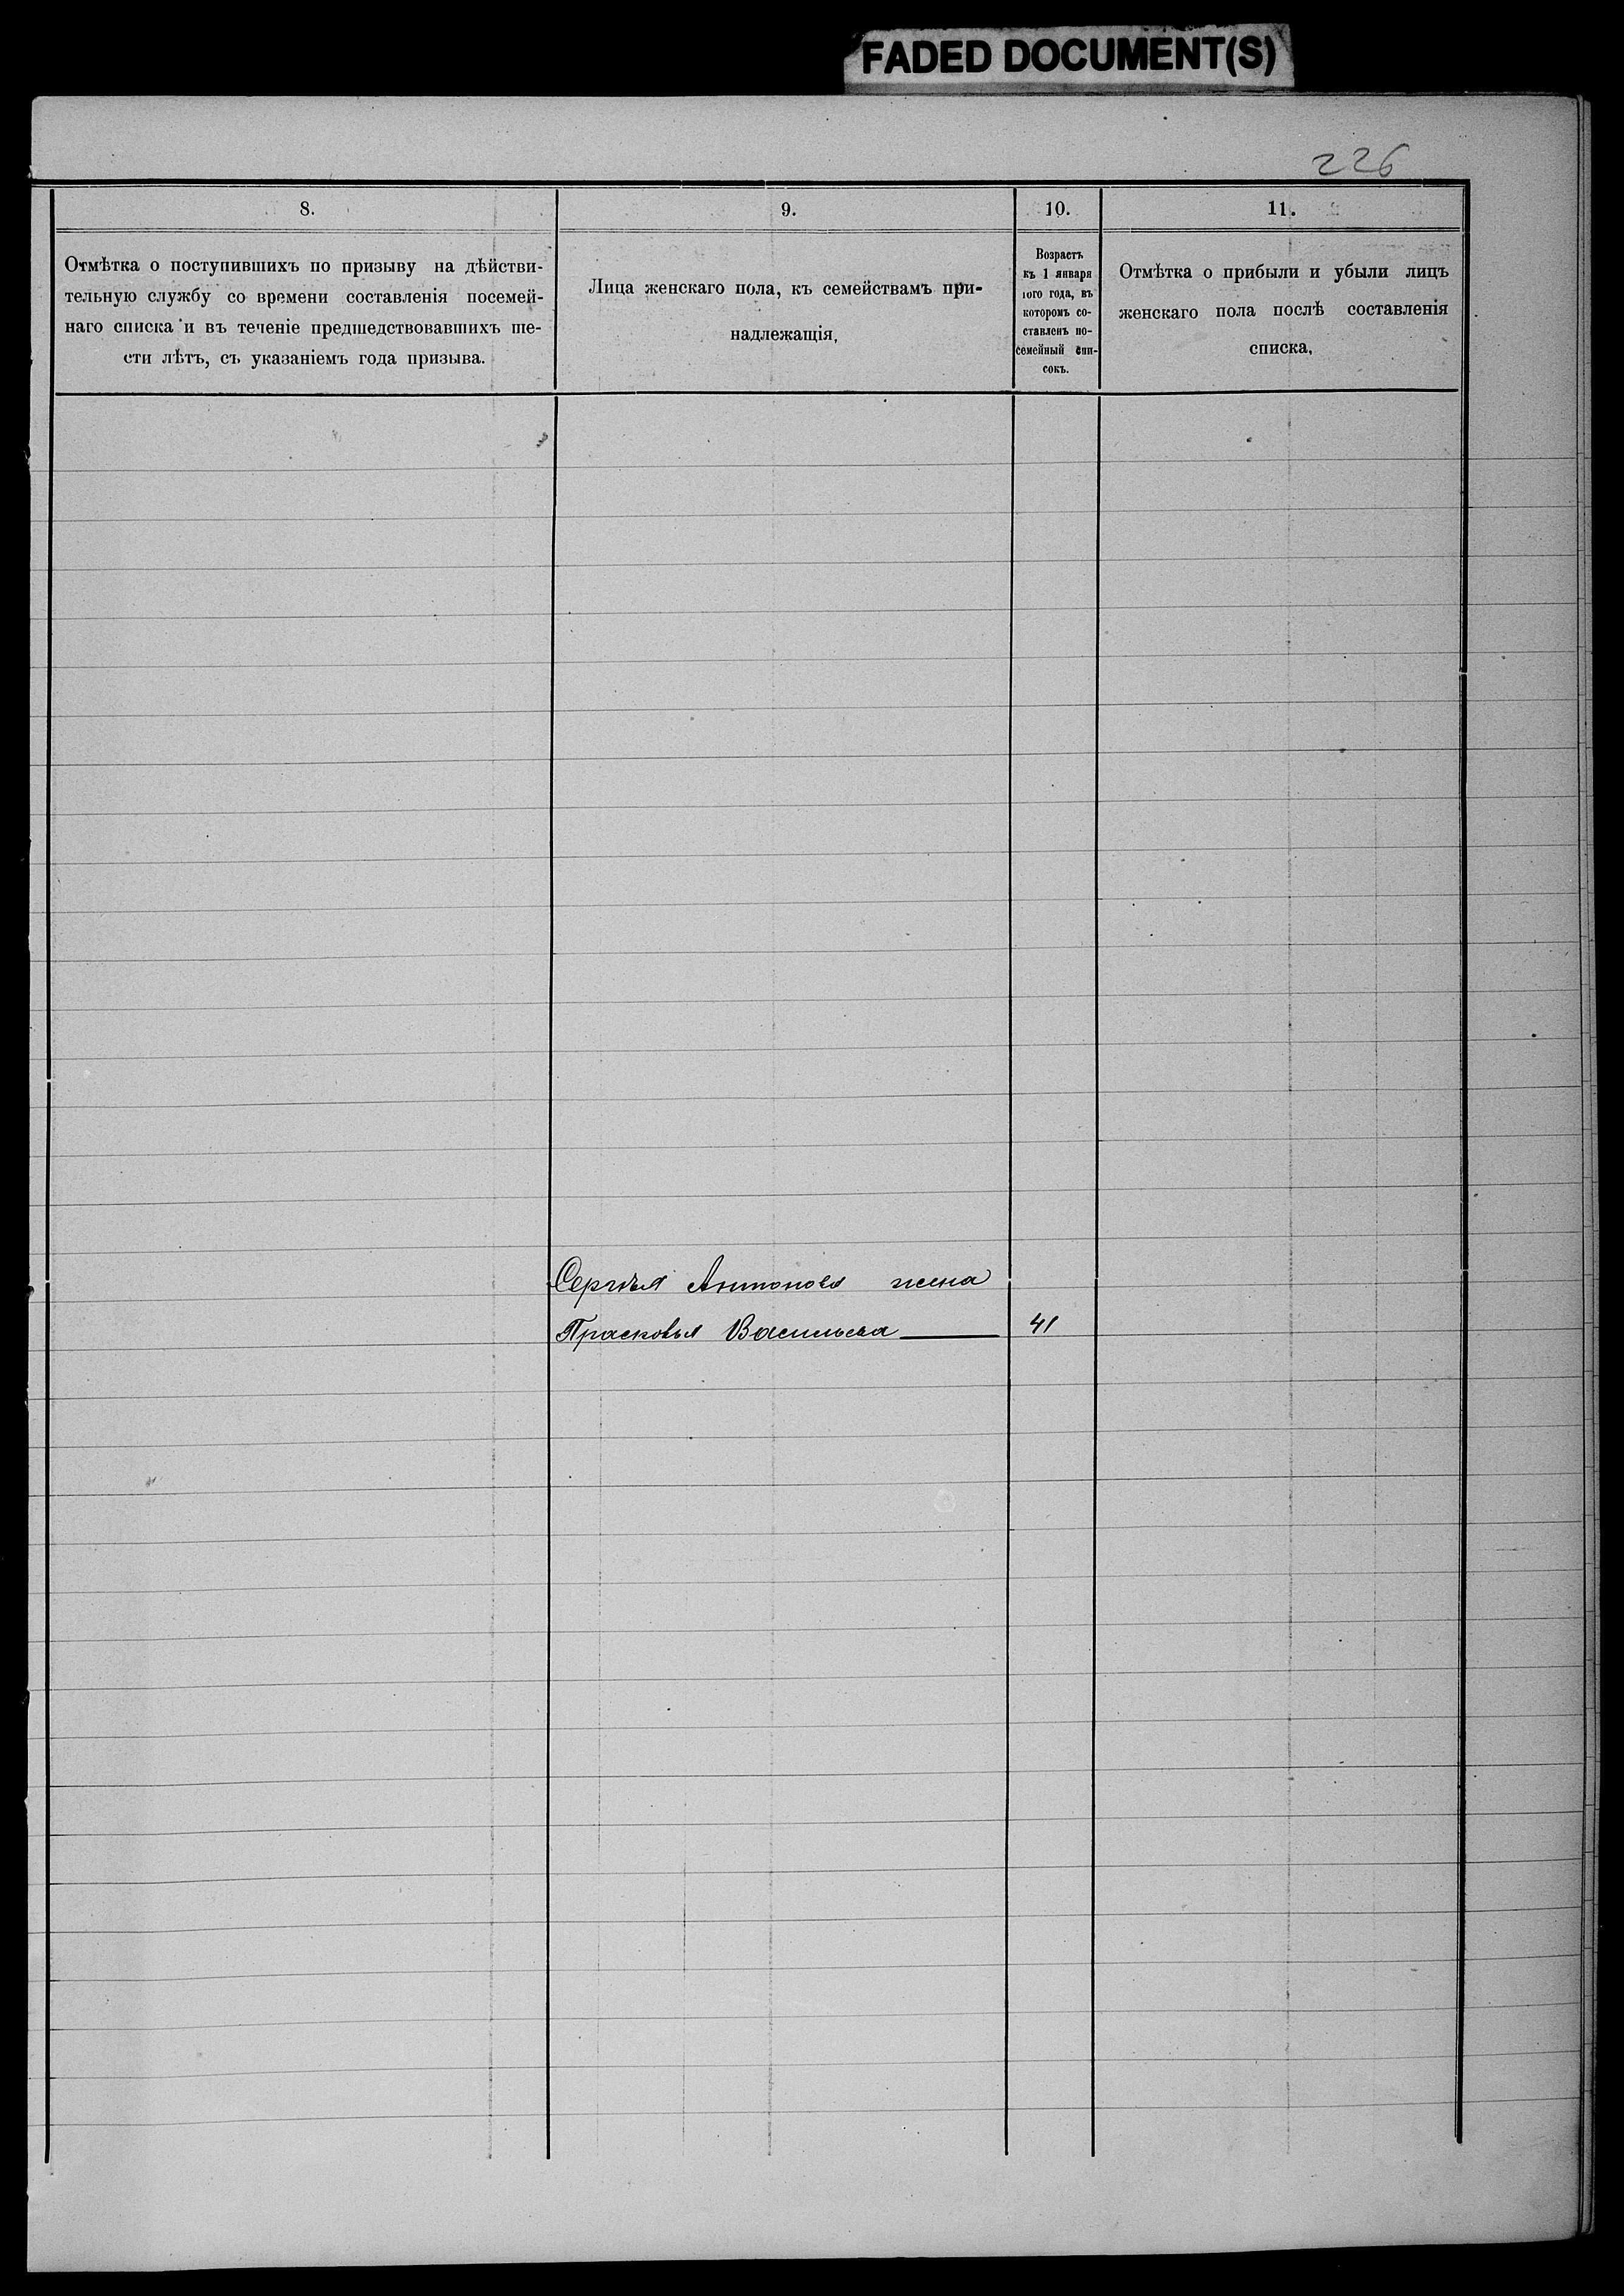 FADED DOCUMENT(S)
226
8.
9.
10.
11.
Отмѣтка о поступившихъ по призыву на дѣйстви-
тельную службу со времени составленія посемей-
наго списка и въ теченіе предшедствовавшихъ ше-
сти лѣтъ, съ указаніемъ года призыва.
Лица женскаго пола, къ семействамъ при-
надлежащія,
Возрастъ
къ 1 января
1ого года, въ
которомъ со-
ставленъ по-
семейный спи-
сокъ.
Отмѣтка о прибыли и убыли лицъ
женскаго пола послѣ составленія
списка,
Сергѣя Антонова жена
Прасковья Васильева 41